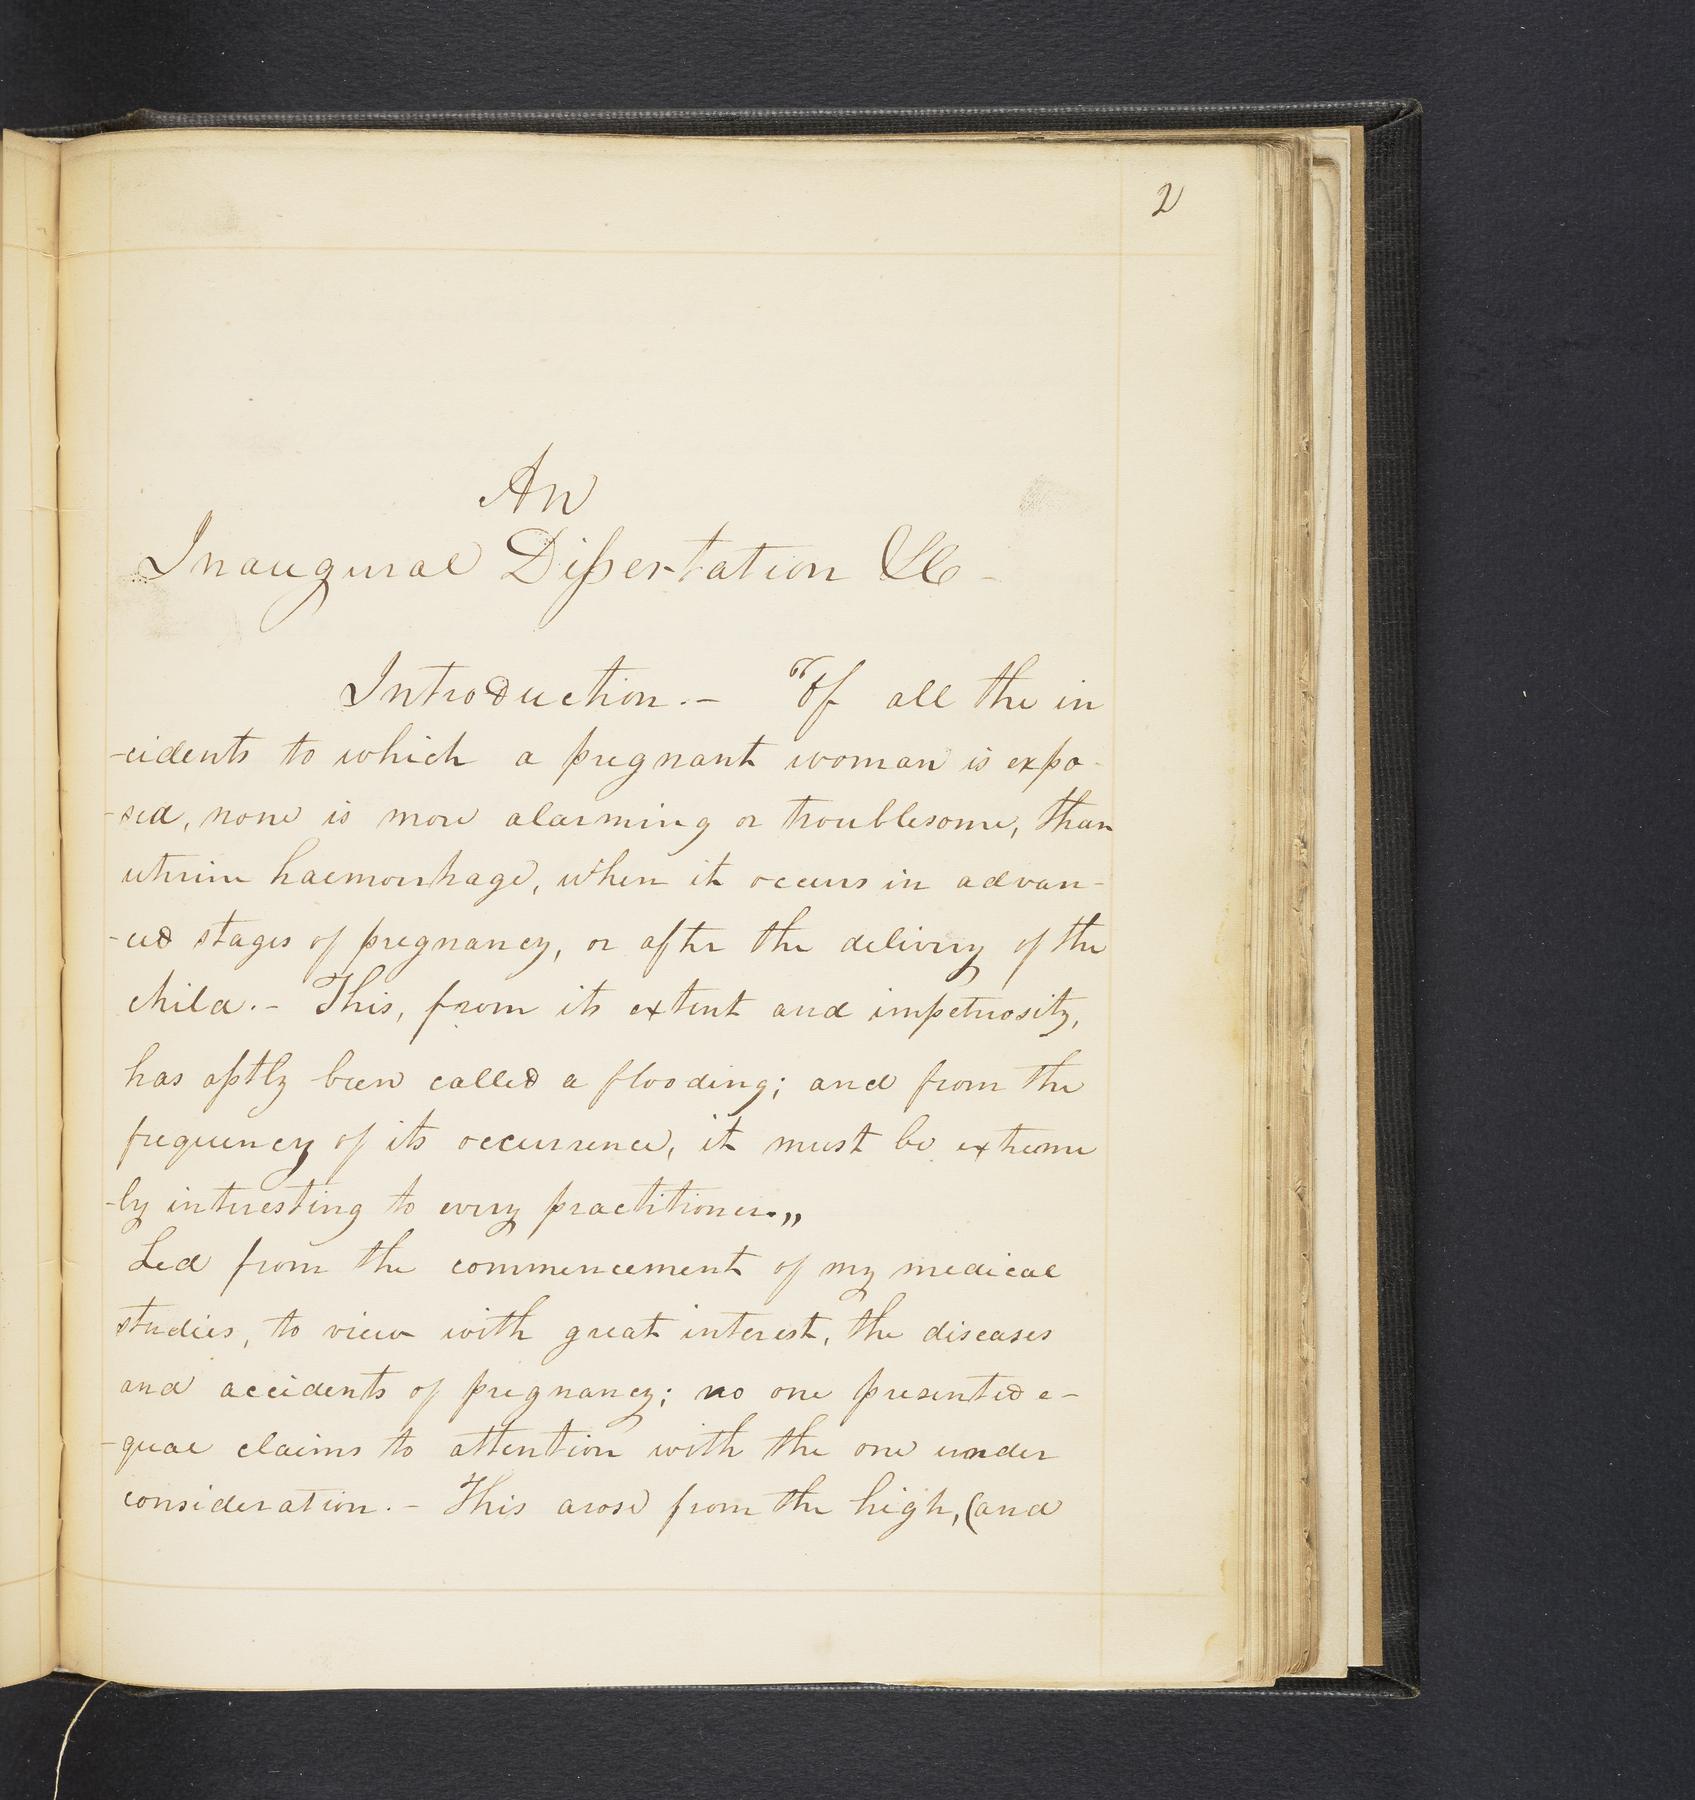 2
An
Inaugural Dissertation &c -
Introduction. - "Of all the in
-cidents to which a pregnant woman is expo-
-sed, none is more alarming or troublesome, than
uterine haemorrhage, when it occurs in advan-
-ced stages of pregnancy, or after the delivery of the
child. - This, from its extent and impetuosity,
has aptly been called a flooding; and from the
frequency of its occurrence, it must be extreme
-ly interesting to every practitioner.„
Led from the commencement of my medical
studies, to view with great interest, the diseases
and accidents of pregnancy; no one presented e-
-qual claims to attention with the one under
consideration. - This arose from the high, (and